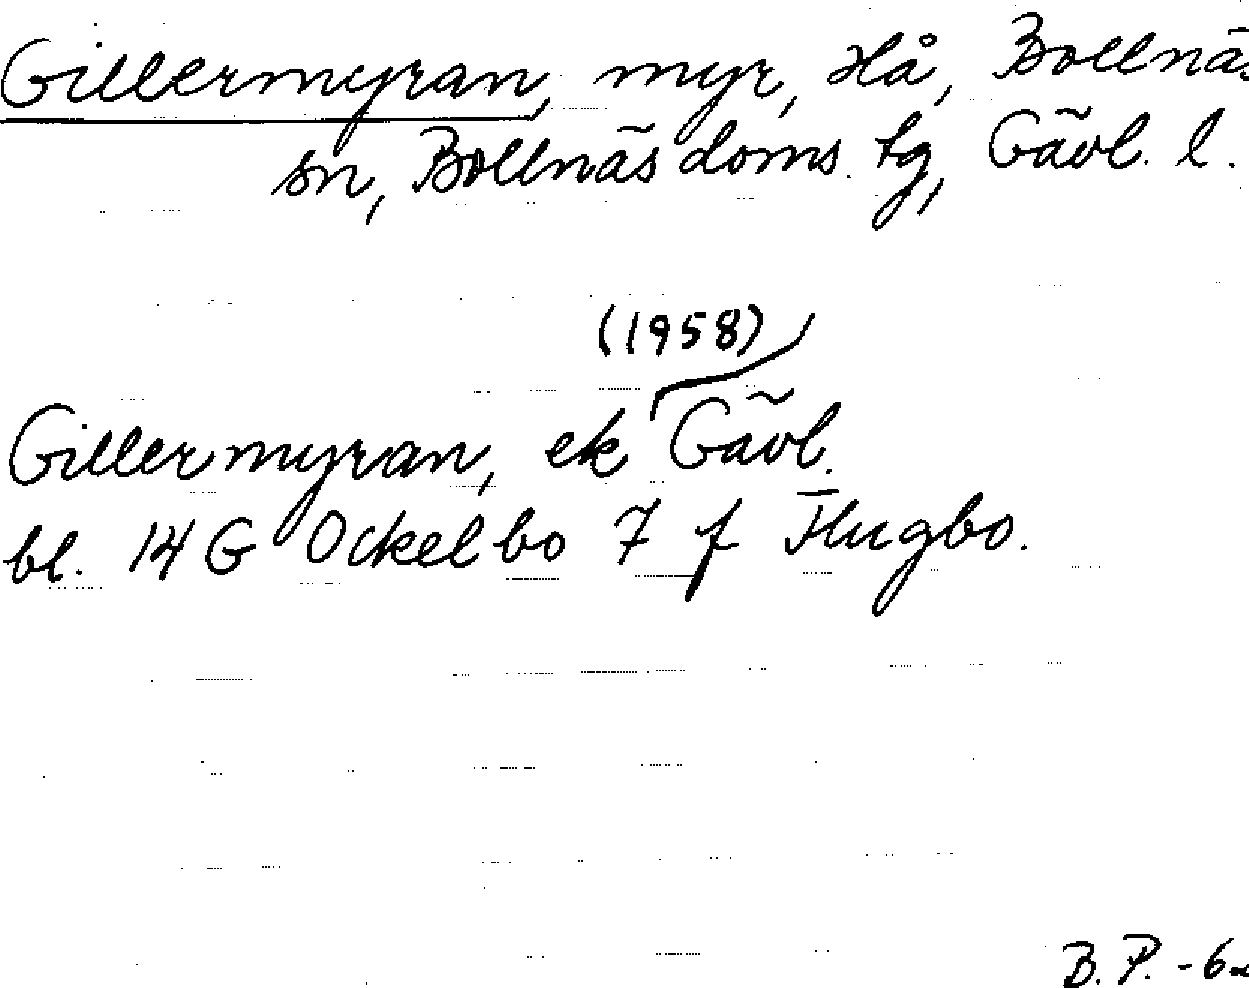 Gillermyran, myr, Hå, Bollnäs
sn, Bollnäs doms. tg, Gävl. l.
(1958)
Gillermyran, ek Gävl.
bl. 14 G Ockelbo 7 f Flugbo.
B. P. -6